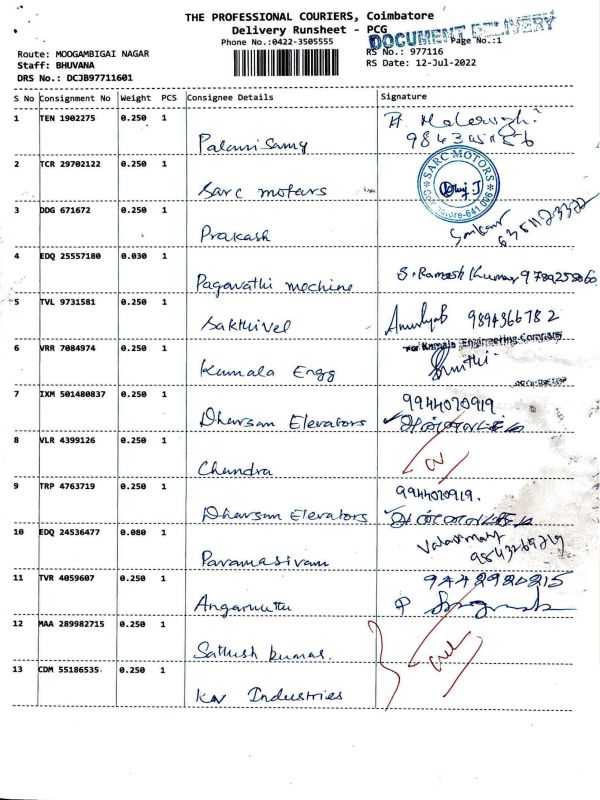 THE PROFESSIONAL COURIERS, Coimbatore
Delivery Runsheet - PCG
Phone No.:0422-3505555
DOCUMENT DELIVERY
Page No.:1
Route: MOOGAMBIGAI NAGAR
RS No.: 977116
Staff: BHUVANA
RS Date: 12-Jul-2022
DRS No.: DCJB97711601
S No Consignment No Weight PCS Consignee Details Signature
1 TEN 1902275 0.250 1 Palani Samy
2 TCR 29702122 0.250 1 Sarc motors
SARC MOTORS
3 DDG 671672 0.250 1 Prakash
4 EDQ 25557180 0.030 1 Pagavathi mechine S. Ramesh Kumar
5 TVL 9731581 0.250 1 Sakthivel 9894366782
For Kamala Engineering Company
6 VRR 7084974 0.250 1 Kamala Engg
7 IXM 501480837 0.250 1 Dharsan Elevators 9944070919
8 VLR 4399126 0.250 1 Chandra
9 TRP 4763719 0.250 1 Dharsan Elevators 9944070919.
10 EDQ 24536477 0.080 1 Paramasivam
11 TVR 4059607 0.250 1 Angamuttu 9442920215
12 MAA 289982715 0.250 1 Sathish kumar.
13 CDM 55186535 0.250 1 KN Industries